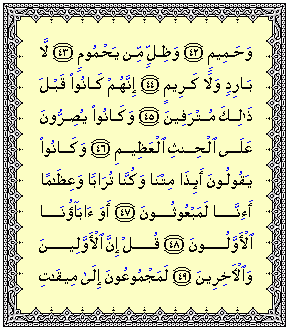 وَحَمِيمٍ ﴿٤٢﴾ وَظِلٍّ مِّن يَحْمُومٍ ﴿٤٣﴾ لَّا
بَارِدٍ وَلَا كَرِيمٍ ﴿٤٤﴾ إِنَّهُمْ كَانُوا۟ قَبْلَ
ذَٰلِكَ مُتْرَفِينَ ﴿٤٥﴾ وَكَانُوا۟ يُصِرُّونَ
عَلَى ٱلْحِنثِ ٱلْعَظِيمِ ﴿٤٦﴾ وَكَانُوا۟
يَقُولُونَ أَئِذَا مِتْنَا وَكُنَّا تُرَابًا وَعِظَٰمًا
أَءِنَّا لَمَبْعُوثُونَ ﴿٤٧﴾ أَوَءَابَآؤُنَا
ٱلْأَوَّلُونَ ﴿٤٨﴾ قُلْ إِنَّ ٱلْأَوَّلِينَ
وَٱلْءَاخِرِينَ ﴿٤٩﴾ لَمَجْمُوعُونَ إِلَىٰ مِيقَٰتِ